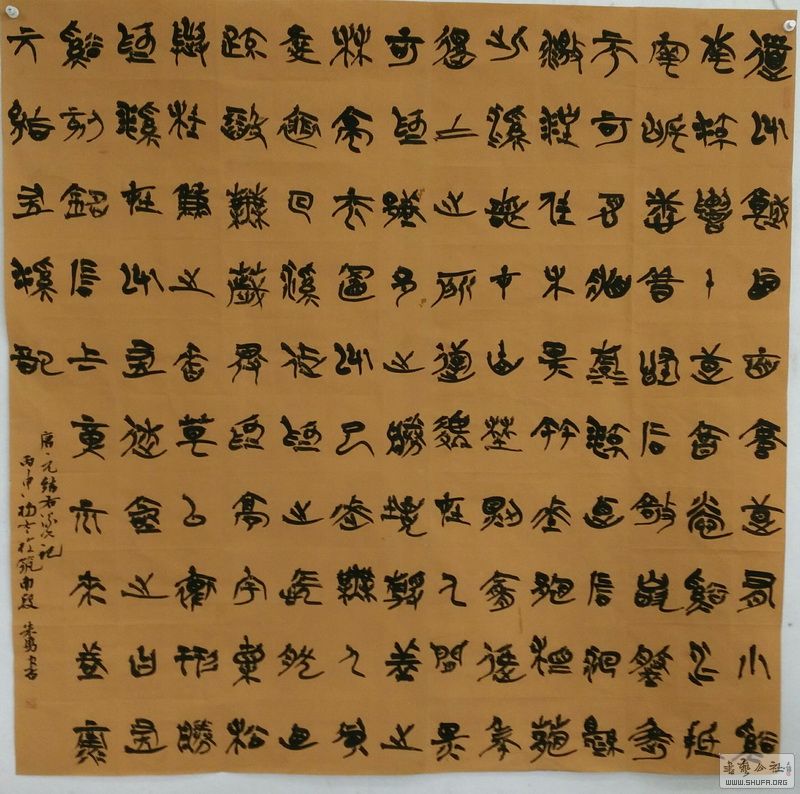 道州城西百餘步有小谿
南流數十步合營谿水抵
兩岸悉皆怪石欹嵌盤屈
不可名狀清流觸石洄懸
激注佳木異竹垂陰相蔭
此溪若在山野則宜逸民
退士之所遊處在人間則
可為都邑之勝境靜者之
林亭而置州已來無人賞
愛徘回溪上為之悵然乃
疏鑿蕪穢俾為亭宇植松
與桂兼之香草以裨形勝
為溪在州右遂命之曰右
谿刻銘石上彰示來者唐
元結右溪記
唐元結右溪記
丙申
書藝公社
WWW.SHUFA.ORG